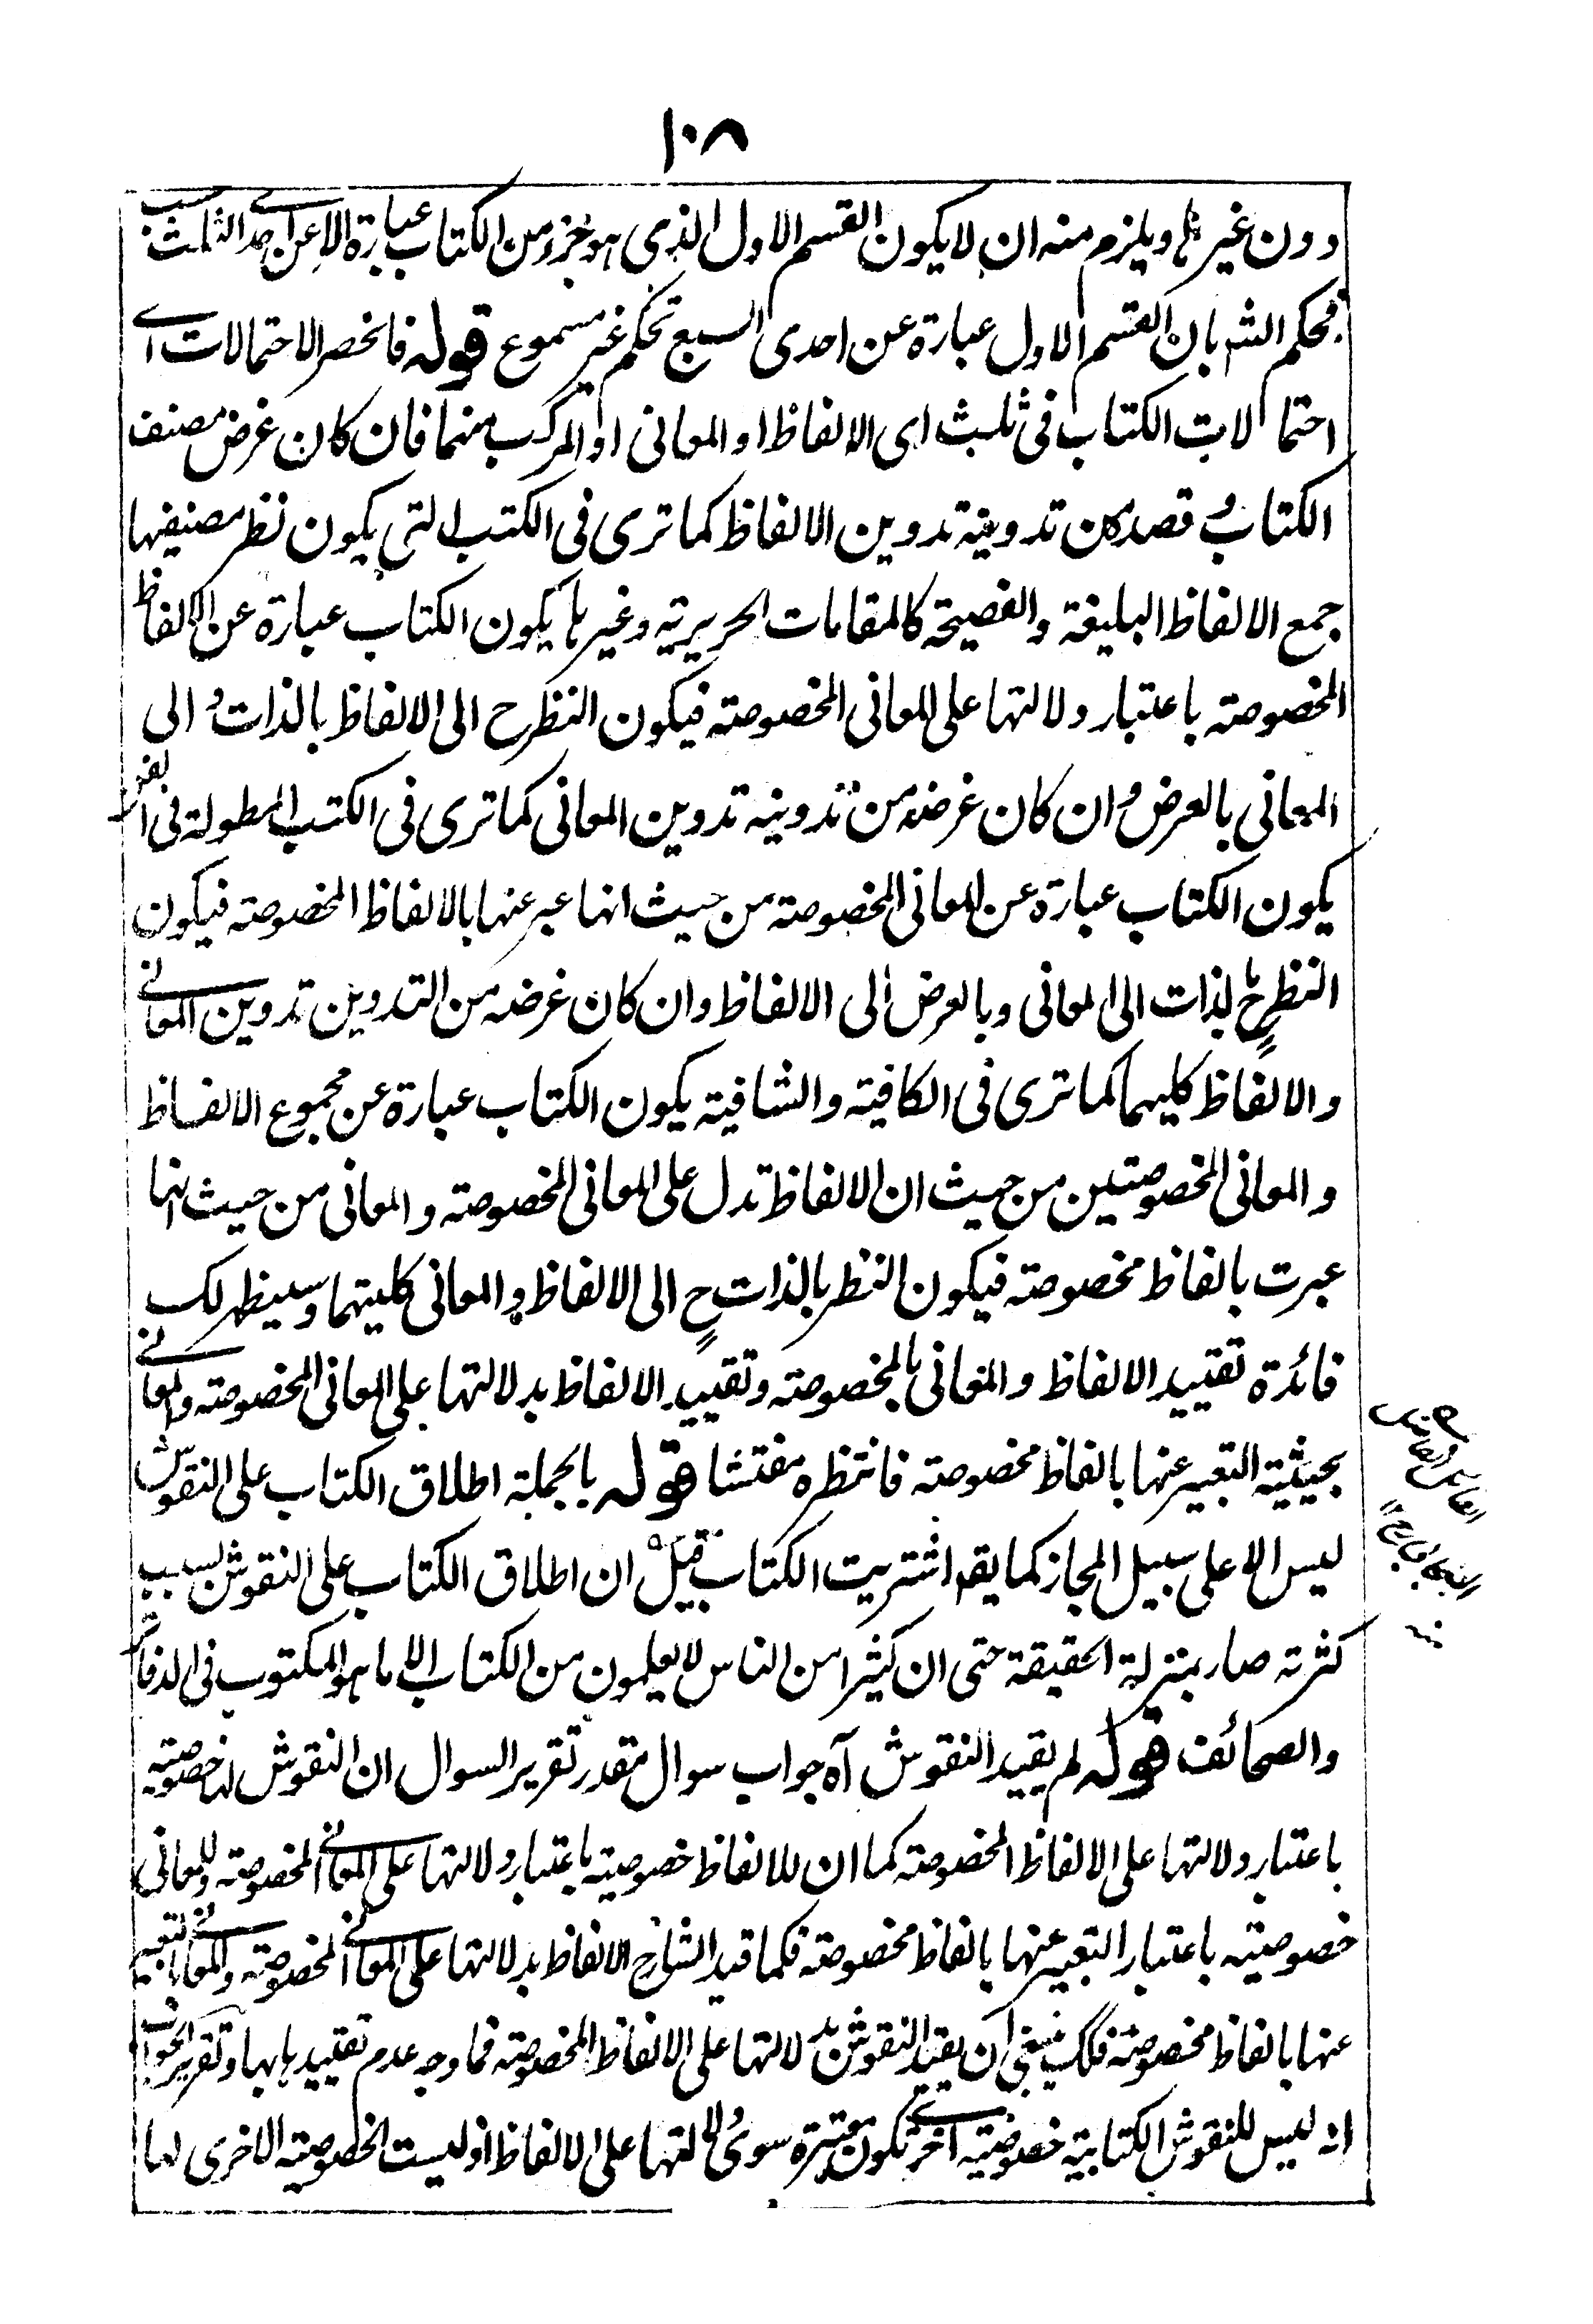 ١٠٨
دون غيرها ويلزم منه ان لا يكون القسم الاول الذى هو جزء من الكتاب عبارة الا عن احدى الثلث فحسب
فحكم الشه بان القسم الاول عبارة عن احدى السبع تحكم غير مسموع قوله فانحصر الاحتمالات اے
احتمالات الكتاب فى ثلث اى الالفاظ او المعانى او المركب منهما فان كان غرض مصنف
الكتاب و قصده من تدوينه تدوين الالفاظ كما ترى فى الكتب التى يكون نظر مصنفيها
جمع الالفاظ البليغة والفصيحة كالمقامات الحريرية وغيرها يكون الكتاب عبارة عن الالفاظ
المخصوصة باعتبار دلالتها على المعانى المخصوصة فيكون النظر ح الى الالفاظ بالذات و الى
المعانى بالعرض و ان كان غرضه من تدوينه تدوين المعانى كما ترى فى الكتب المطولة فى الفن
يكون الكتاب عبارة عن المعانى المخصوصة من حيث انها عبر عنها بالالفاظ المخصوصة فيكون
النظر ح بالذات الى المعانى وبالعرض الى الالفاظ وان كان غرضه من التدوين تدوين المعانے
والالفاظ كليهما كما ترى فى الكافية والشافية يكون الكتاب عبارة عن مجموع الالفاظ
والمعانى المخصوصتين من حيث ان الالفاظ تدل على المعانى المخصوصة والمعانى من حيث انها
عبرت بالفاظ مخصوصة فيكون النظر بالذات ح الى الالفاظ و المعانى كليتهما وسيظهر لك
فائدة تقييد الالفاظ والمعانى بالمخصوصة وتقييد الالفاظ بدلالتها على المعانى المخصوصة والمعانے
بحيثية التعبير عنها بالفاظ مخصوصة فانتظره مفتشا قوله بالجملة اطلاق الكتاب على النقوش
ليس الا على سبيل المجاز كما يقم اشتريت الكتاب قيل ان اطلاق الكتاب على النقوش بسبب
كثرته صار بمنزلة الحقيقة حتى ان كثيرا من الناس لا يعلمون من الكتاب الا ما هو المكتوب فى الدفاتر
والصحائف قوله لم يقيد النقوش آه جواب سوال مقدر تقرير السوال ان النقوش لها خصوصية
باعتبار دلالتها على الالفاظ المخصوصة كما ان للالفاظ خصوصية باعتبار دلالتها على المعانے المخصوصة وللمعانى
خصوصية باعتبار التعبير عنها بالفاظ مخصوصة فكما قيد الشارح الالفاظ بدلالتها على المعانے المخصوصة والمعانے بالتعبير
عنها بالفاظ مخصوصة فكك ينبغى ان يقيد النقوش بدلالتها على الالفاظ المخصوصة فما وجه عدم تقييدها بها و تقرير الجواب
انه ليس للنقوش الكتابية خصوصية اخرے تكون معتبرة سوى دلالتها على الالفاظ اذ ليست الخصوصية الاخرى لها